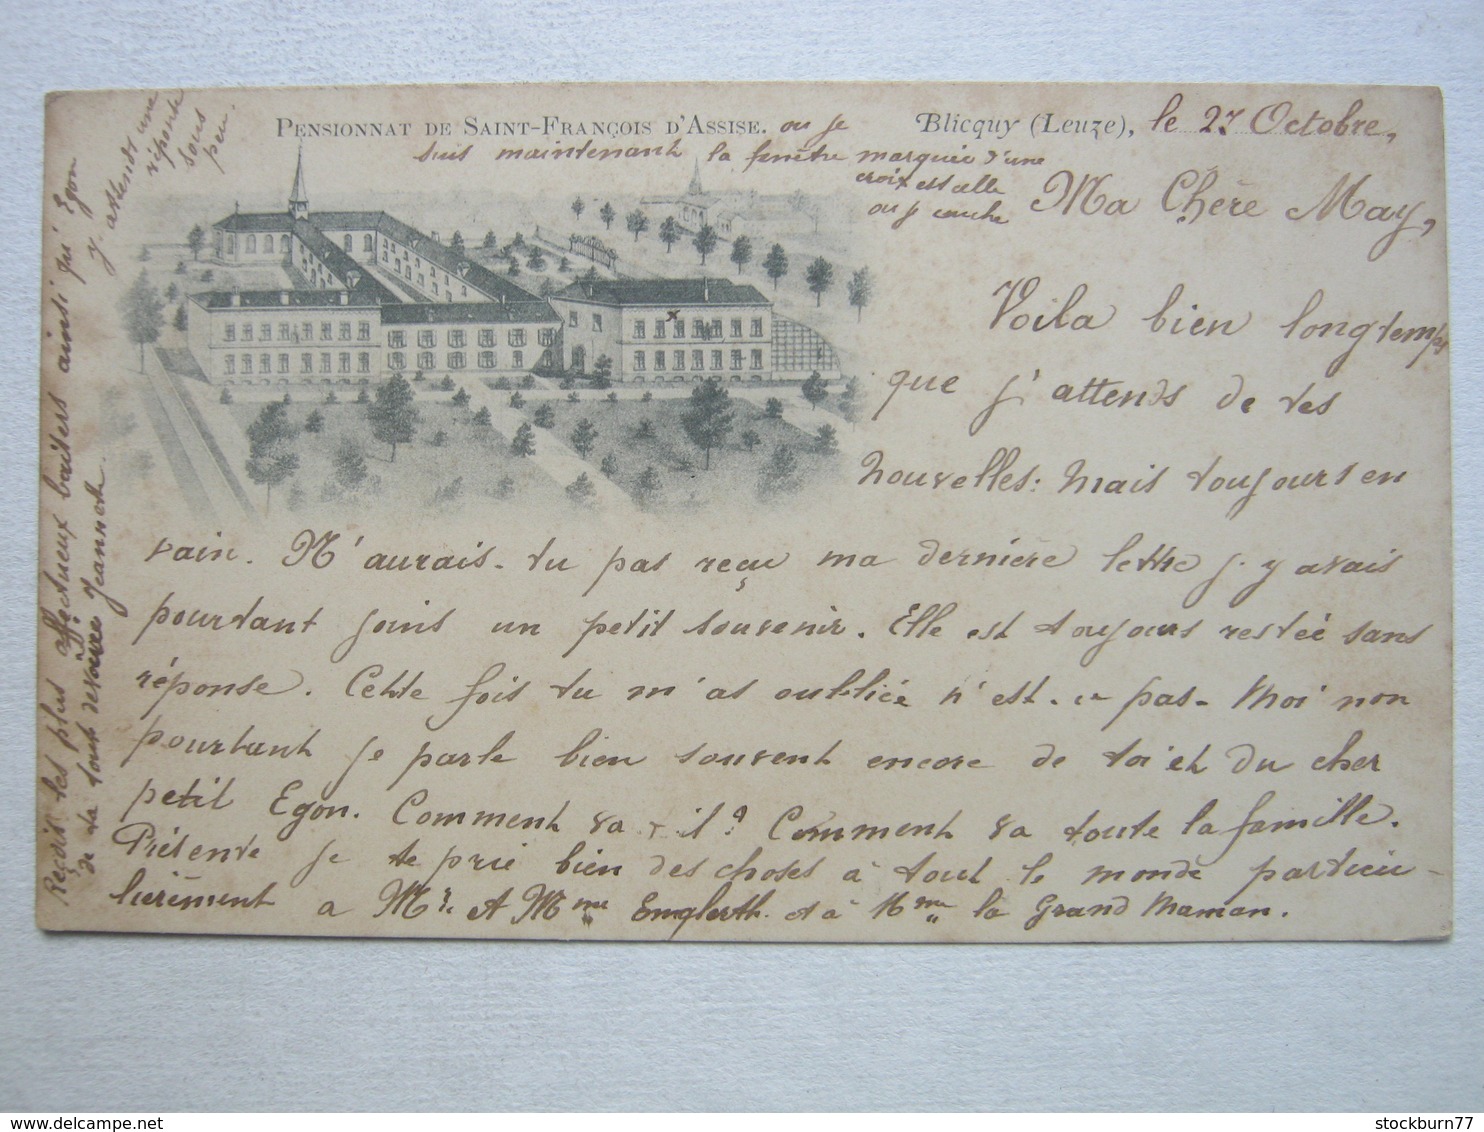 PENSIONNAT DE SAINT-FRANÇOIS D'ASSISE. ou je
suis maintenant la fenêtre marquée d'une
croix est celle
ou je couche
Blicquy (Leuze), le 27 Octobre,
Ma Chère May,
Voila bien longtemps
que j'attends de tes
nouvelles: mais toujours en
vain. N'aurais-tu pas reçu ma dernière lettre j-y avais
pourtant joins un petit souvenir. Elle est toujours restée sans
réponse. Cette fois tu m'as oubliée n'est-ce pas- Moi non
pourtant je parle bien souvent encore de toi et du cher
petit Egon. Comment va-t-il? Comment va toute la famille.
Présente je te prie bien des choses à tout le monde particu-
lièrement a Mr. et Mme Englerth. et à Mme la Grand Maman.
Reçois les plus affectueux baisers ainsi qu'Egon
de ta tout dévouée Jeannette.
J'attends une
réponse
sous
peu.
stockburn77